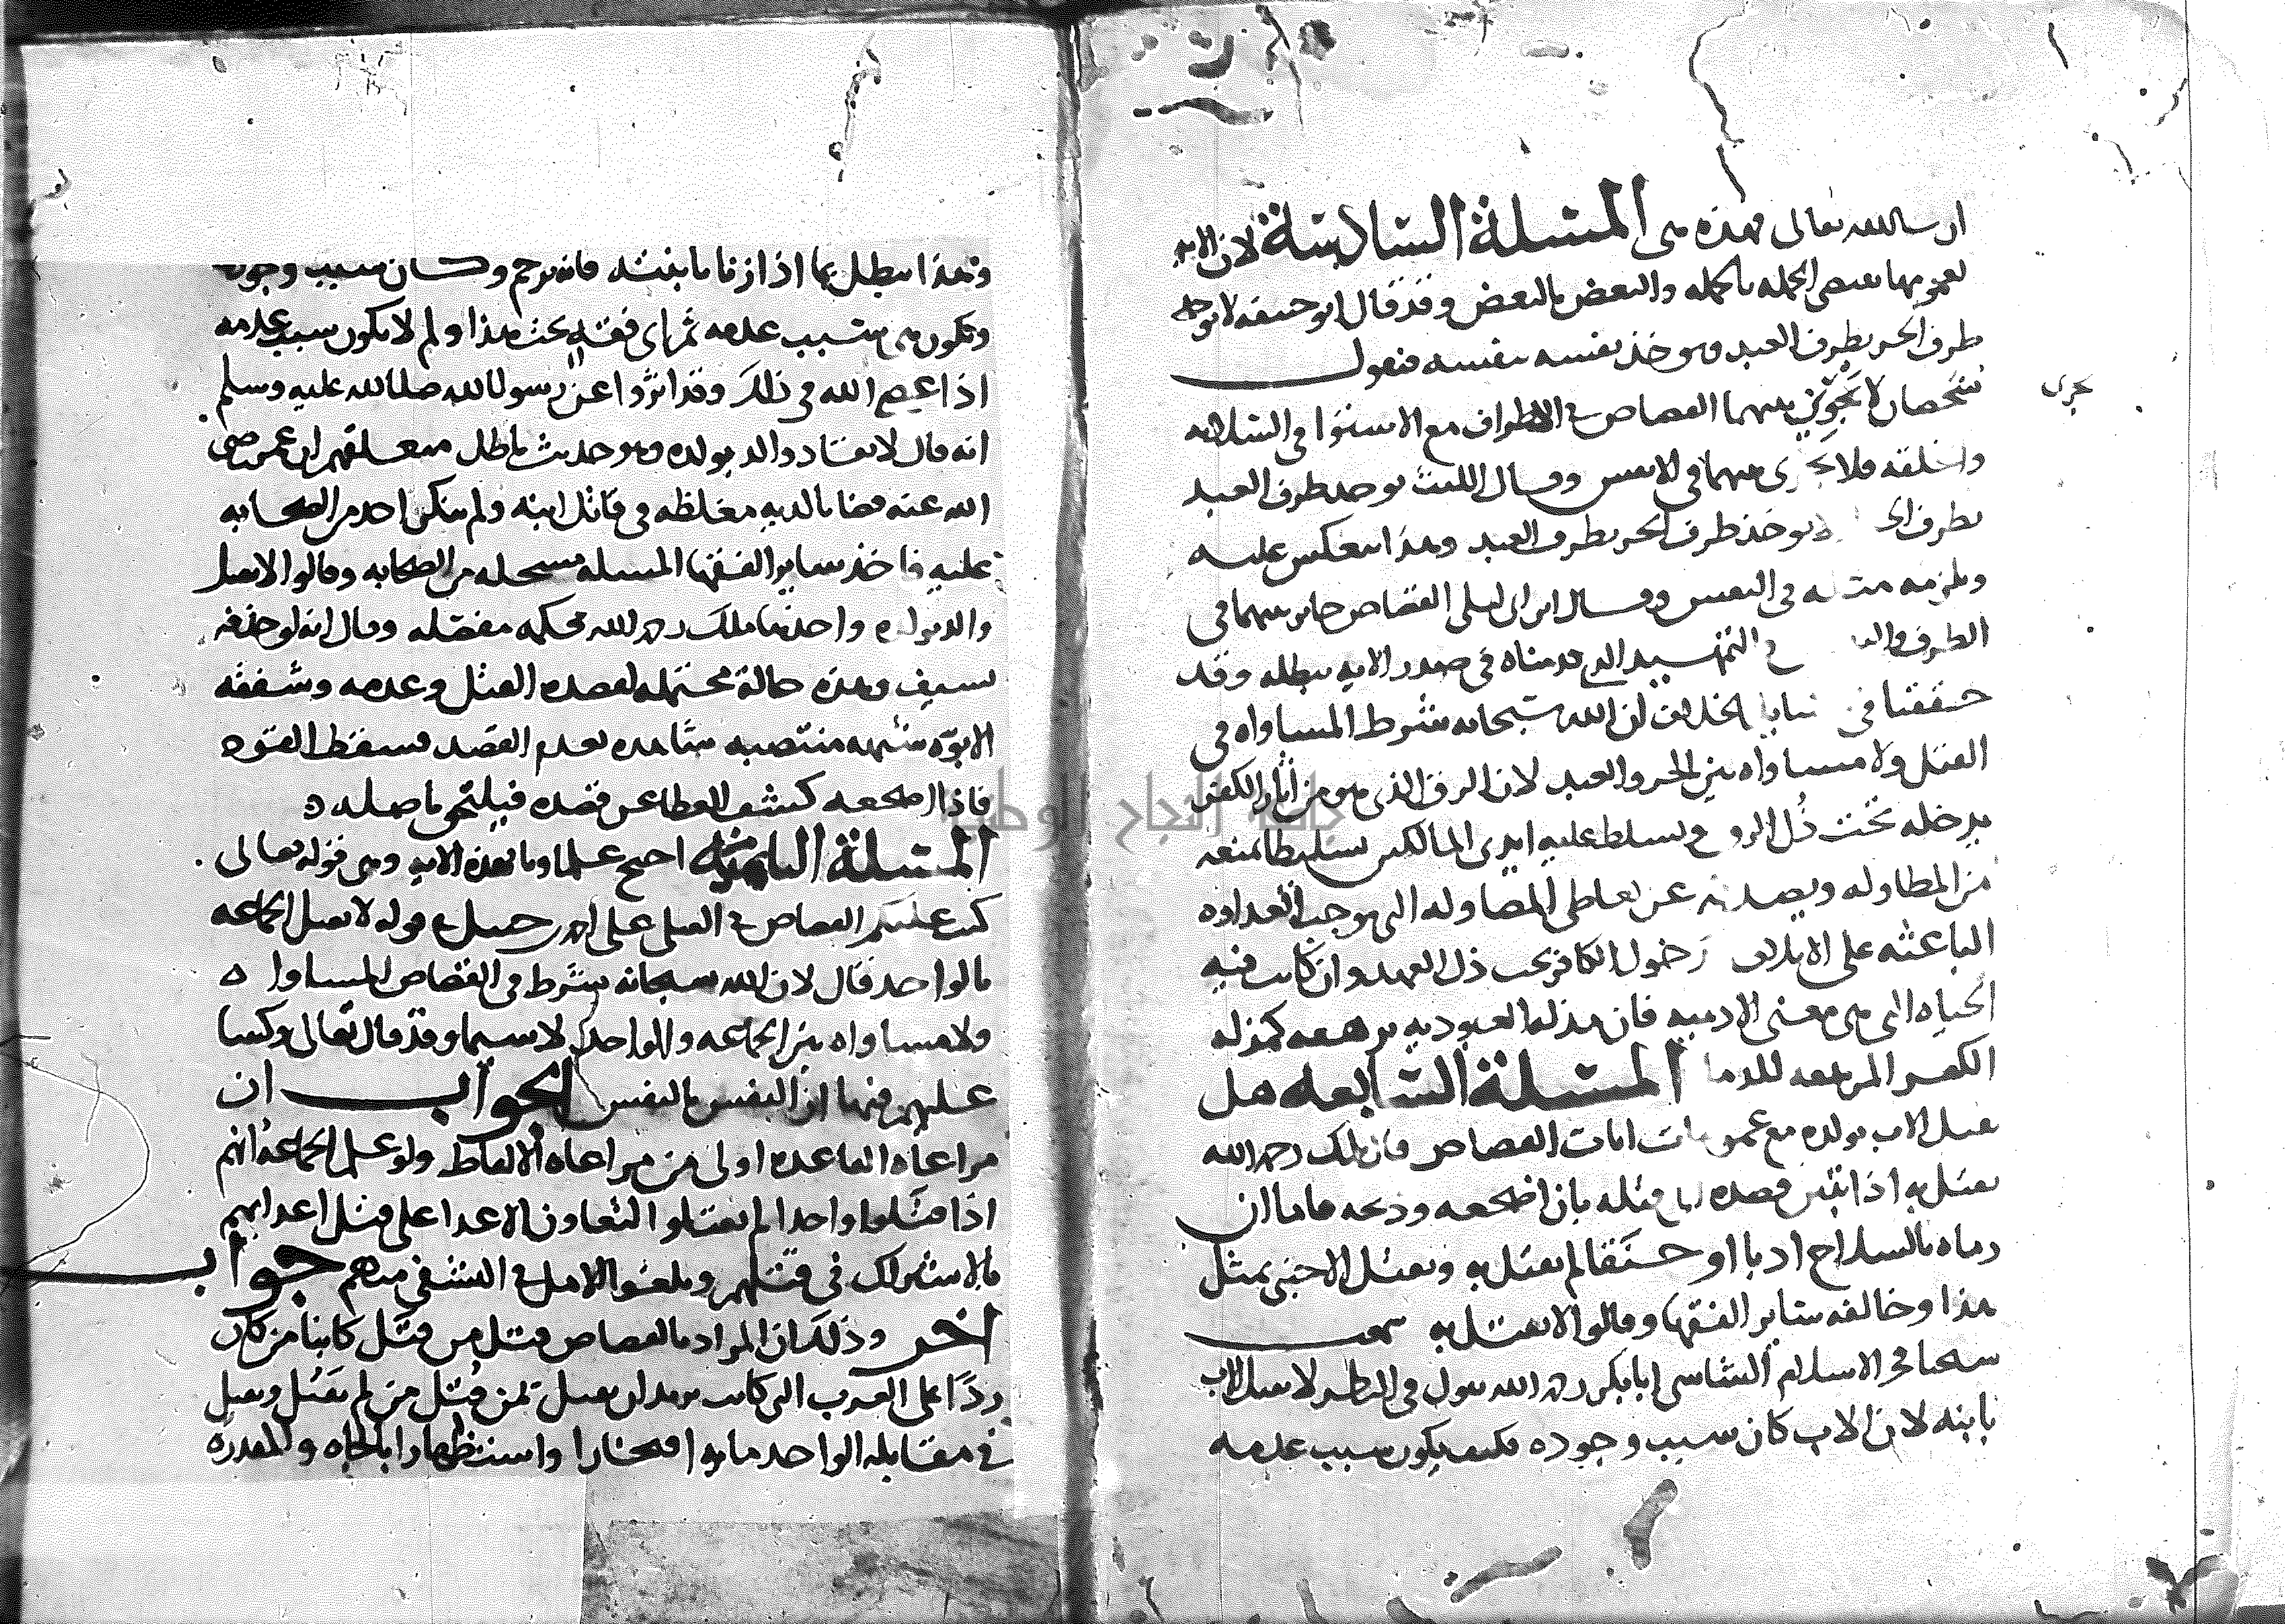 ان شا الله تعالى فهذه هي المسئلة السادسة لان الايه
بعمومها تقتضي الجمله بالجمله والبعض بالبعض وقد قال ابو حنيفه لا يوخذ
طرف الحر بطرف العبد ويوخذ نفسه بنفسه فنقول
شخصان لا يجري بينهما القصاص في الاطراف مع الاستوا في السلامه
يجري
والخلقه فلا يجري بينهما في الانفس وقال الليث يوخذ طرف العبد
بطرف الحر ولا يوخذ طرف الحر بطرف العبد وهذا ينعكس عليه
ويلزمه مثله في النفس وقال ابن ابي ليلى القصاص جار بينهما في
الطرف والنفس والتمهيد الذي قدمناه في صدر الايه يبطله وقد
حققنا في مسايل الخلاف ان الله سبحانه شرط المساواه في
القتل ولا مساواه بين الحر والعبد لان الرق الذي هو من اثار الكفر
يدخله تحت ذل الرق وتسلط عليه ايدي المالكين تسليطا يمنعه
من المطاوله ويصده عن تعاطي المصاوله التي توجب العداوه
الباعثه على الاتلاف دخول الكافر تحت ذل العهد وان كانت فيه
الحياه التي هي معنى الادميه فان مذله العبوديه ترهقه كمذله
الكفر المرهقه للدما المسئلة السابعه هل
يقتل الاب بولده مع عمومات ايات القصاص قال ملك رحمه الله
يقتل به اذا تبين قصده الى قتله بان اضجعه وذبحه فاما ان
رماه بالسلاح ادبا او حنقا لم يقتل به ويقتل الاجنبي بمثل
هذا وخالفه ساير الفقها وقالوا لا يقتل به سمعت
شيخنا فخر الاسلام الشاشي ابا بكر رحمه الله يقول في النظر لا يقتل الاب
بابنه لان الاب كان سبب وجوده فكيف يكون سبب عدمه
وهذا يبطل بما اذا زنا بابنته فانه يرجم وكان سبب وجودها
وتكون هي سبب عدمه ثم اي فقه تحت هذا ولم لا يكون سبب عدمه
اذا عصى الله في ذلك وقد اثروا عن رسول الله صلى الله عليه وسلم
انه قال لا يقاد والد بولده وهو حديث باطل متعلقهم ان عمر رضي
الله عنه قضا بالديه مغلظه في قاتل ابنه ولم ينكر احد من الصحابه
عليه فاخذ ساير الفقها المسله مسجله من الصحابه وقالوا لا يقتل
والد بولده واخذها ملك رحمه الله محكمه مفصله وقال انه لو حذفه
بسيف وهذه حالة محتمله لقصده القتل وعدمه وشفقه
الابوه شبهه منتصبه شاهده بعدم القصد فسقط القود
فاذا اضجعه كشف الغطا عن قصده فيلتحق باصله
المسئلة الثامنة احتج علماونا بهذه الايه وهي قوله تعالى
كتب عليكم القصاص في القتلى على احمد بن حنبل في قوله لا يقتل الجماعه
بالواحد قال لان الله سبحانه شرط في القصاص المساواه
ولا مساواه بين الجماعه والواحد لا سيما وقد قال تعالى وكتبنا
عليهم فيها ان النفس بالنفس الجواب ان
مراعاه القاعده اولى من مراعاه الالفاظ ولو علم الجماعه انهم
اذا قتلوا واحدا لم يقتلوا لتعاون الاعدا على قتل اعدايهم
بالاشتراك في قتلهم وبلغوا الامل في التشفي منهم جواب
اخر وذلك ان المراد بالقصاص قتل من قتل كاينا من كان
ردا على العرب التي كانت تريد ان يقتل بمن قتل من لم يقتل ويقتل
في مقابله الواحد مايه افتخارا واستظهارا بالجاه والمقدره
جامعة النجاح الوطنية